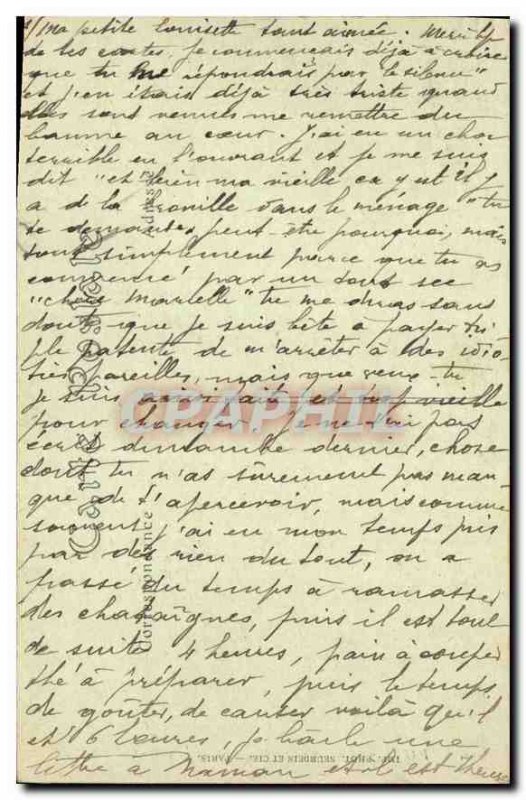 1/ Ma petite Louisette tant aimée. Merci
de tes cartes. Je commençais déjà à croire
que tu me répondrais par le silence"
et j'en étais déjà très triste quand
elles sont venues me remettre du
baume au cœur. J'ai eu un choc
terrible en l'ouvrant et je me suis
dit "eh bien ma vieille ça y est il y
a de la brouille dans le ménage" tu
te demandes peut-être pourquoi, mais
tout simplement parce que tu as
commencé par un tout sec
"chère Marcelle" tu me diras sans
doute que je suis bête à payer tri
ple patente de m'arrêter à des idio
ties pareilles, mais que veux tu
je suis ainsi faite et trop vieille
pour changer. Je ne t'ai pas
écrit dimanche dernier, chose
dont tu n'as sûrement pas man
qué de t'apercevoir, mais comme
souvent j'ai eu mon temps pris
par des rien du tout, on a
passé du temps à ramasser
des chataîgnes, puis il est tout
de suite 4 heures, pain à couper
thé à préparer, puis le temps
de goûter, de causer voilà qu'il
est 6 heures, je
lettre à Maman et il est
Carte Postale
Correspondance
Adresse
PHOT. NEURDEIN ET CIE. - PARIS.
CRAPHIL